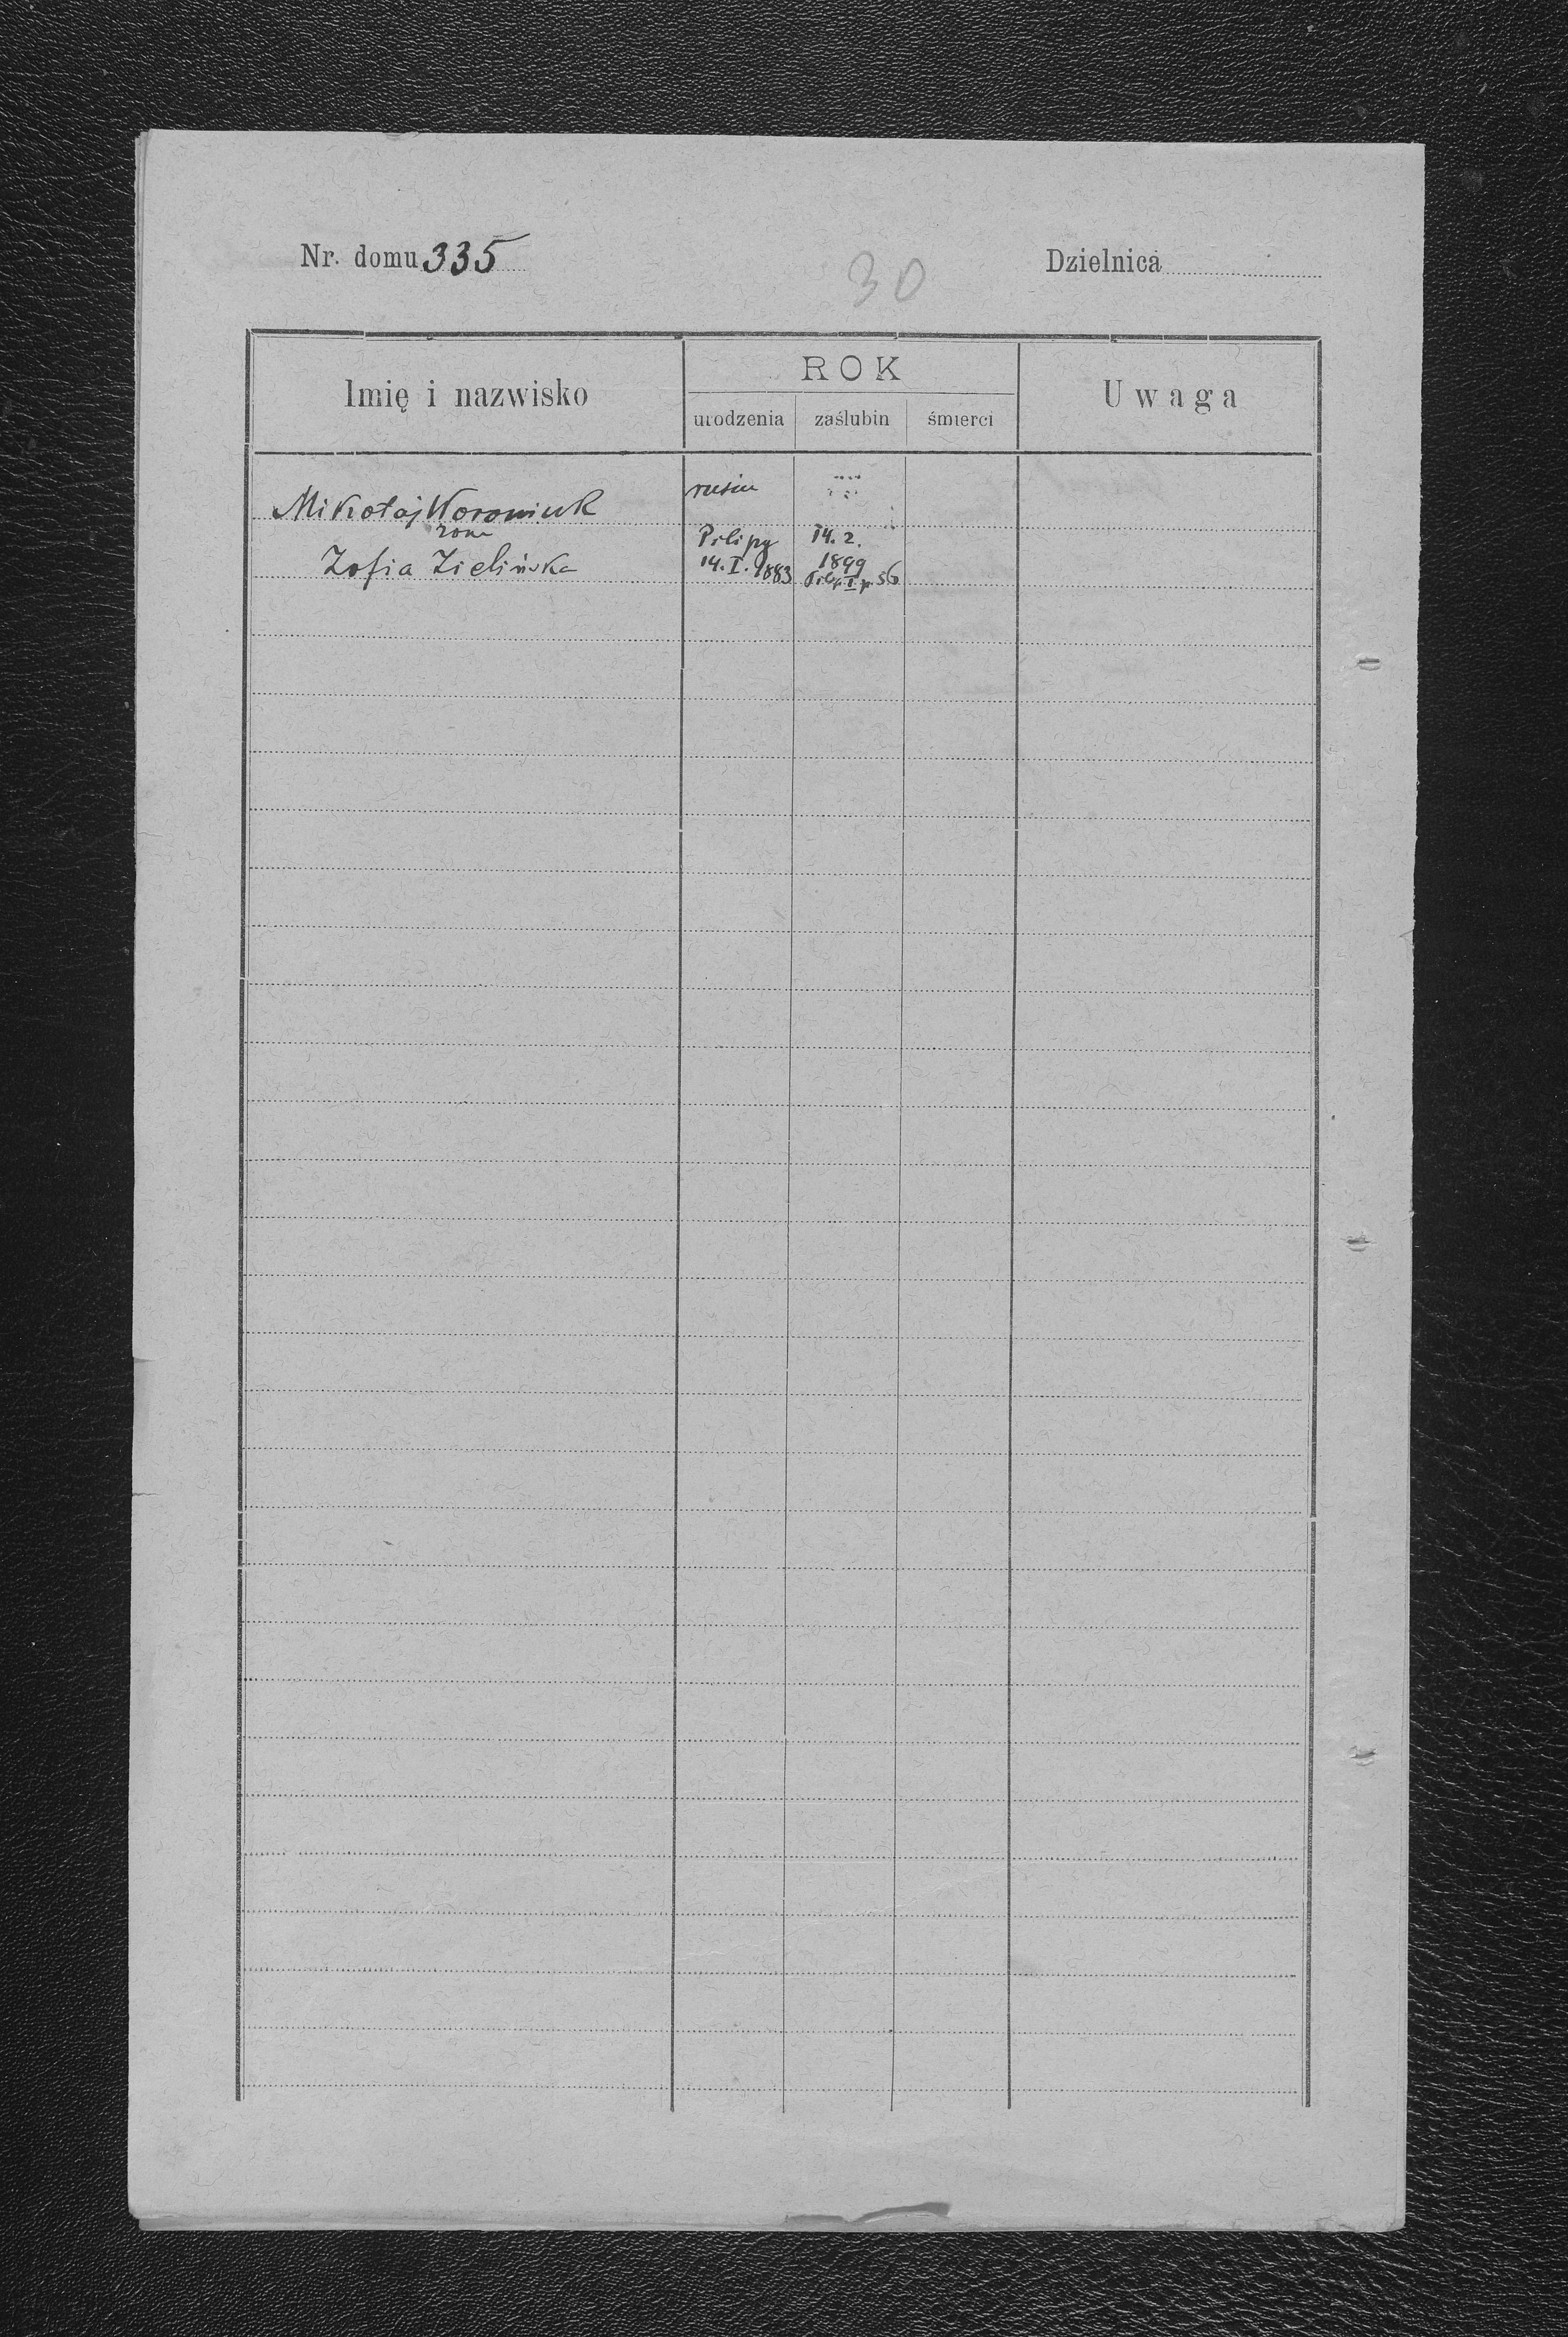 Nr. domu 335
30
Dzielnica
Imię i nazwisko
ROK
urodzenia zaślubin śmierci
Uwaga
Mikołaj Woroniuk rusin
żona
Zofia Zielińska
Pilipy
14. I. 1883
14. 2.
1899
p. 56